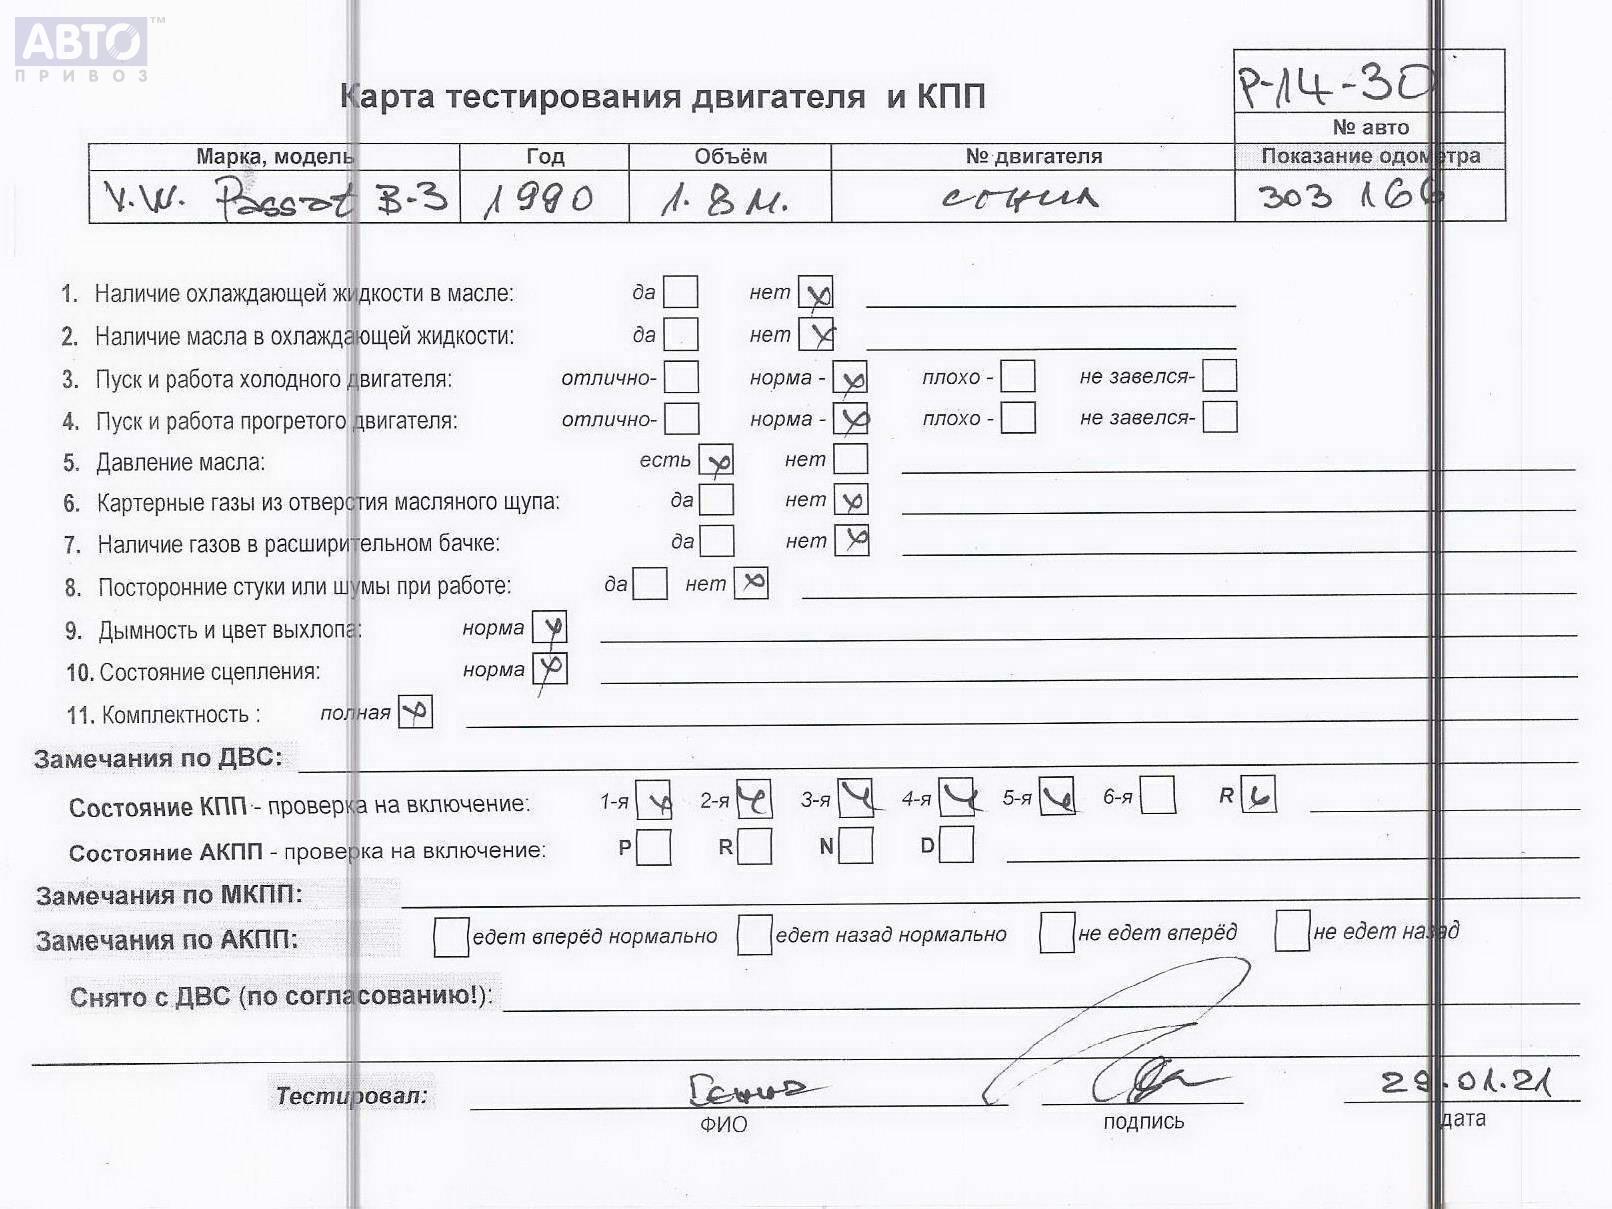 АВТО™
ПРИВОЗ
Карта тестирования двигателя и КПП
P-14-30
№ авто
Марка, модель Год Объём № двигателя Показание одометра
V.W. Passat B-3 1990 1.8 м. 303 166
1. Наличие охлаждающей жидкости в масле: да нет
2. Наличие масла в охлаждающей жидкости: да нет
3. Пуск и работа холодного двигателя: отлично- норма - плохо - не завелся-
4. Пуск и работа прогретого двигателя: отлично- норма - плохо - не завелся-
5. Давление масла: есть нет
6. Картерные газы из отверстия масляного щупа: да нет
7. Наличие газов в расширительном бачке: да нет
8. Посторонние стуки или шумы при работе: да нет
9. Дымность и цвет выхлопа: норма
10. Состояние сцепления: норма
11. Комплектность : полная
Замечания по ДВС:
Состояние КПП - проверка на включение: 1-я 2-я 3-я 4-я 5-я 6-я R
Состояние АКПП - проверка на включение: P R N D
Замечания по МКПП:
Замечания по АКПП: едет вперёд нормально едет назад нормально не едет вперёд не едет назад
Снято с ДВС (по согласованию!):
Тестировал: 29.01.21
ФИО подпись дата